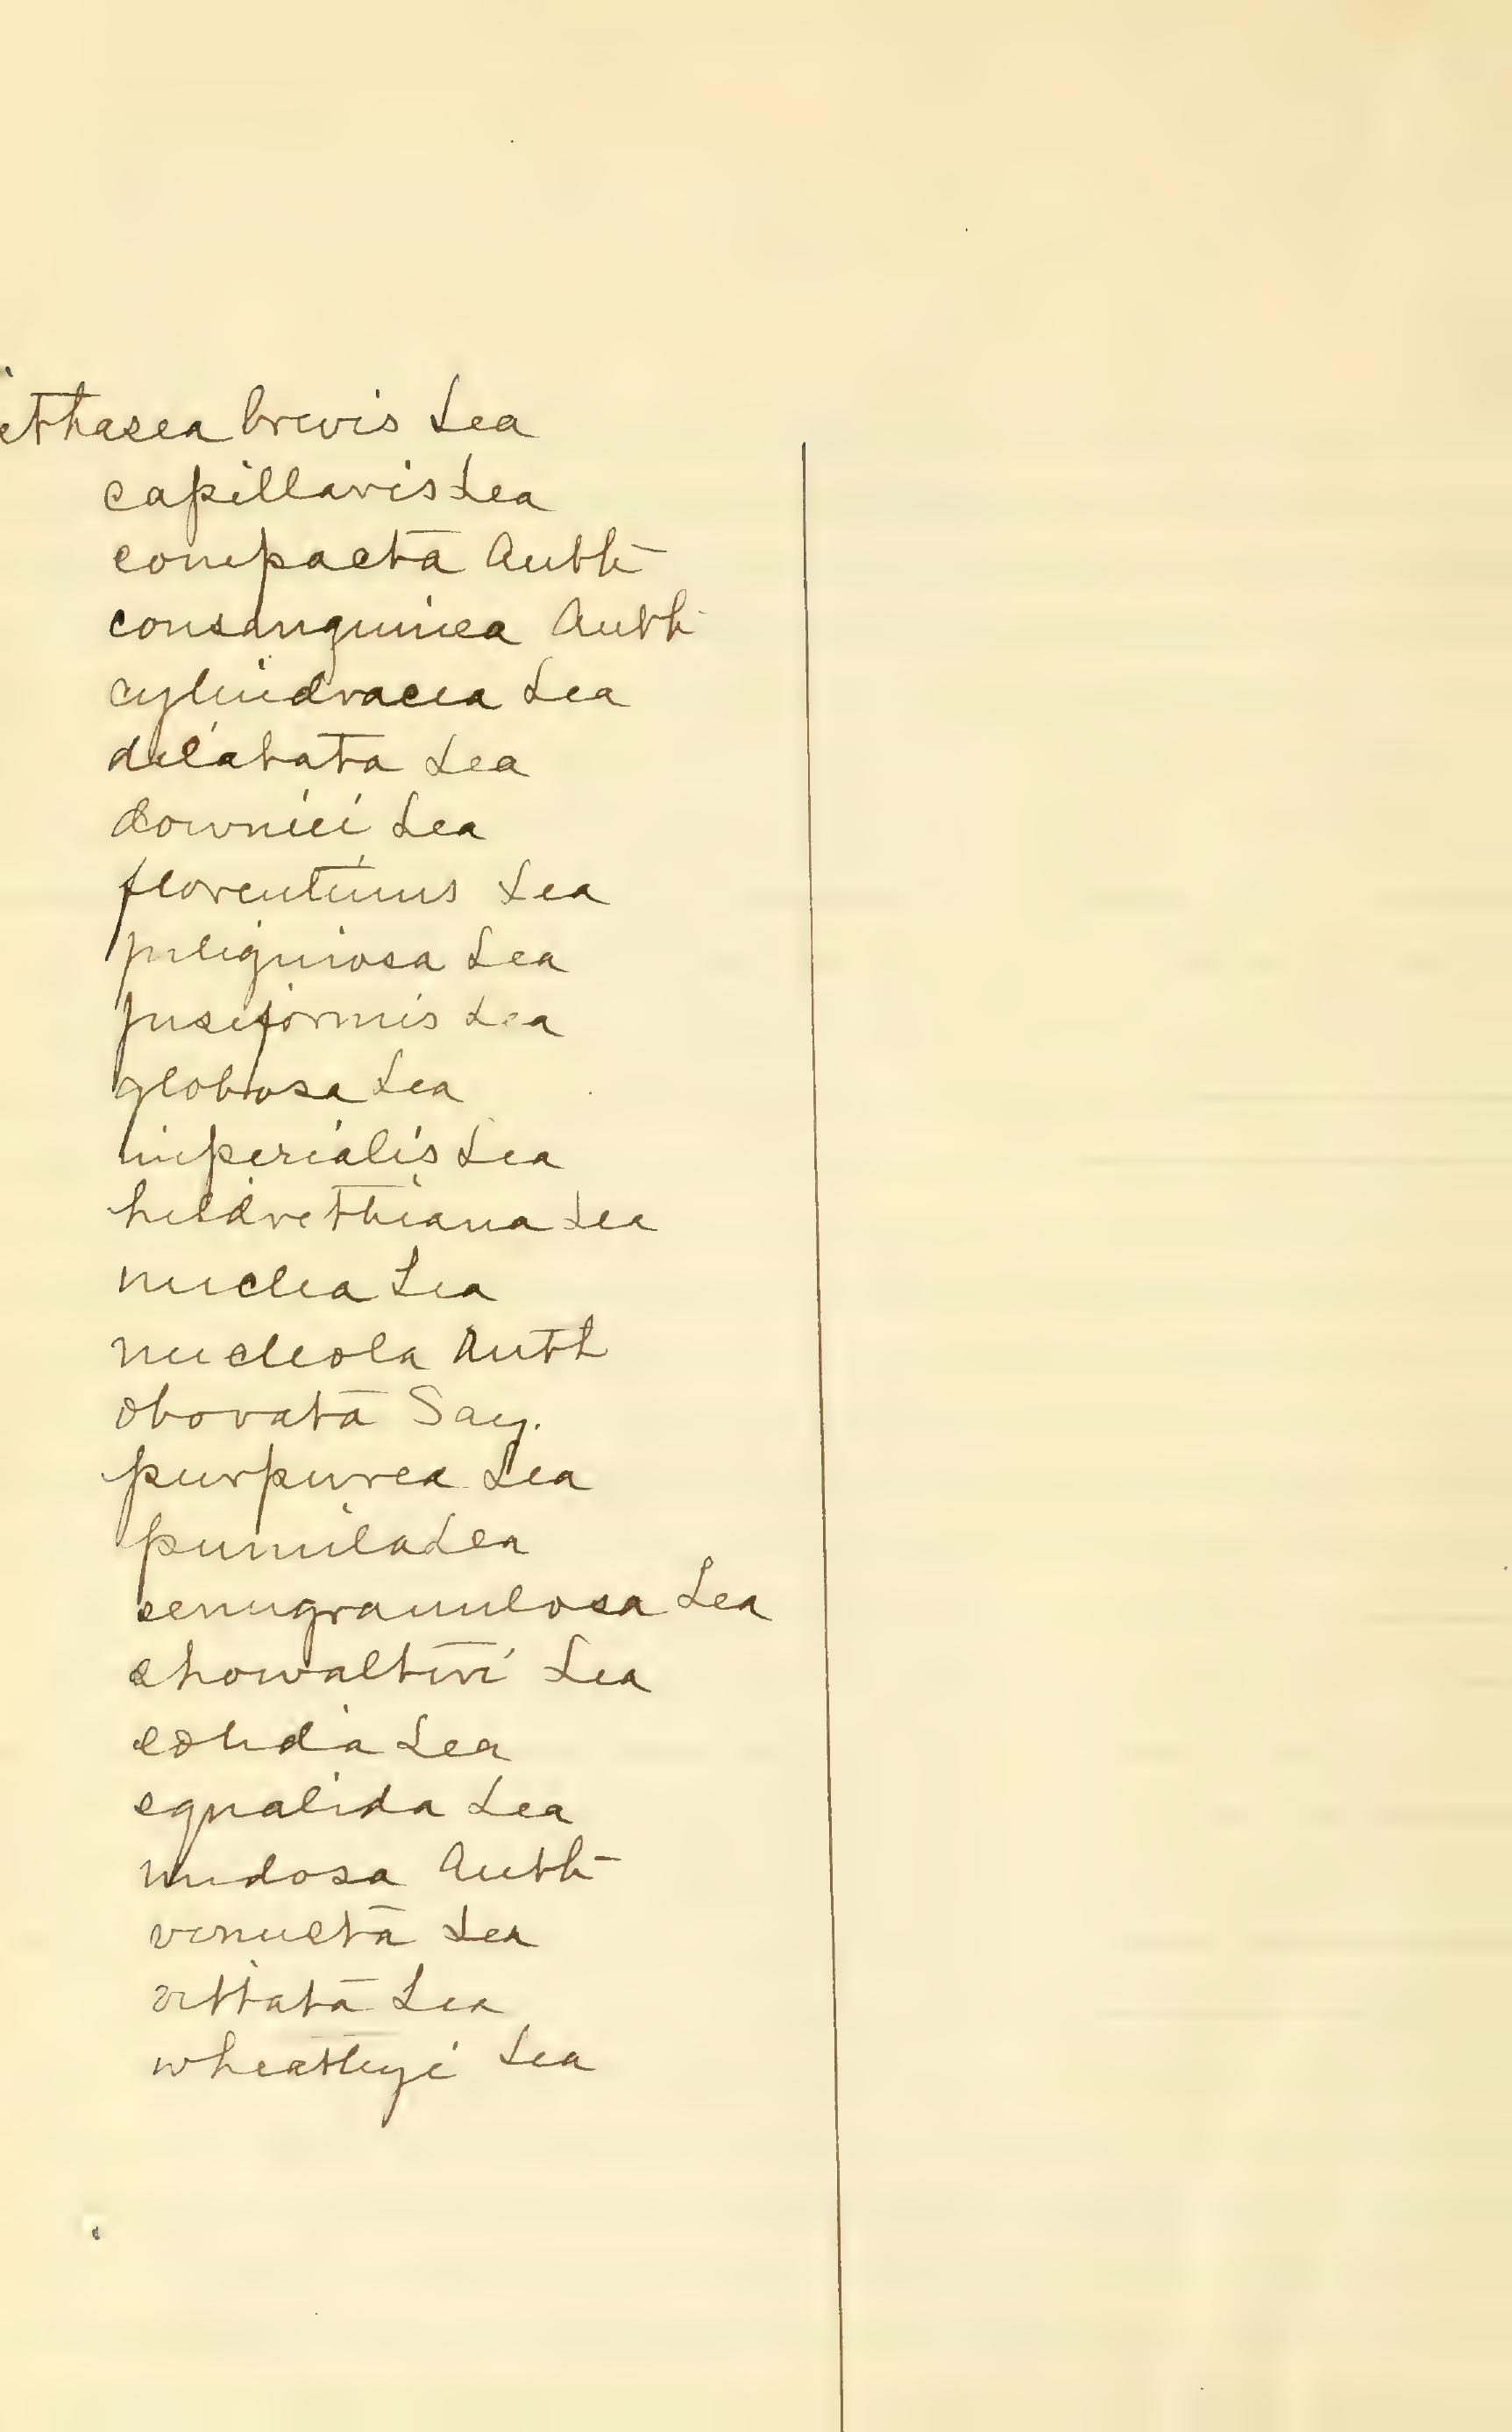 ithasea brevis Lea
capillaris Lea
compacta Anth
consanguinea Anth
cylindracea Lea
dilatata Lea
downiei Lea
florentinus Lea
fuliginosa Lea
fusiformis Lea
globosa Lea
imperialis Lea
hildrethiana Lea
nuclea Lea
nucleola Anth
obovata Say.
purpurea Lea
pumila Lea
semigranulosa Lea
showalteri Lea
solida Lea
squalida Lea
nudosa Anth
venusta Lea
vittata Lea
wheatleyi Lea